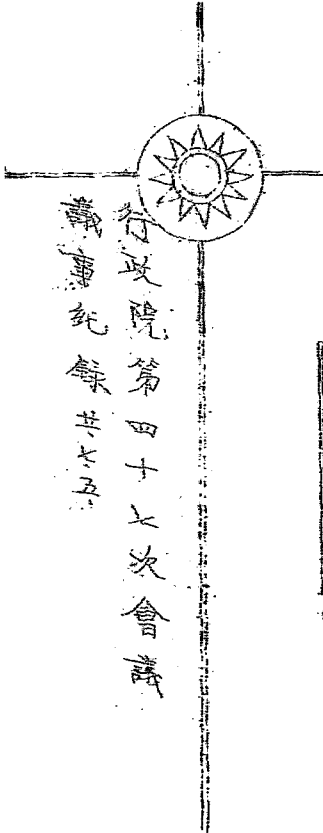 行政院第四十七次會議
議事紀錄 廿七、五、